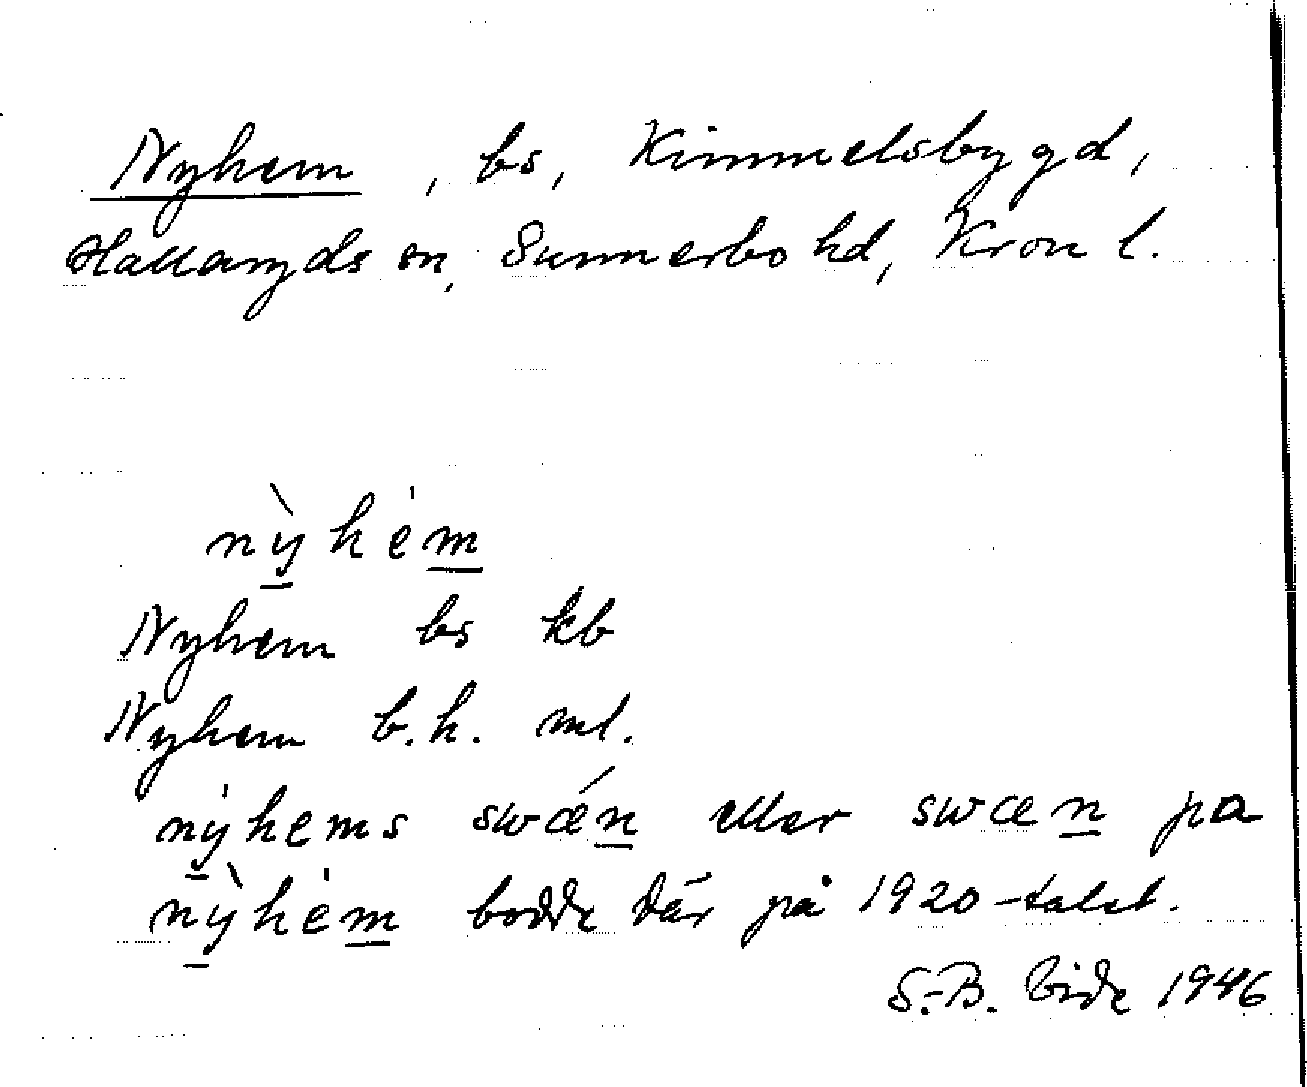 Nyhem, bs, Kimmelsbygd,
Hallaryds sn, Sunnerbo hd, Kron l.
nỳhėm
Nyhem bs kb
Nyhem b.h. ml.
nyhems swǽn eller swæn pa
nỳhėm bodde där på 1920-talet.
S.-B. Vide 1946